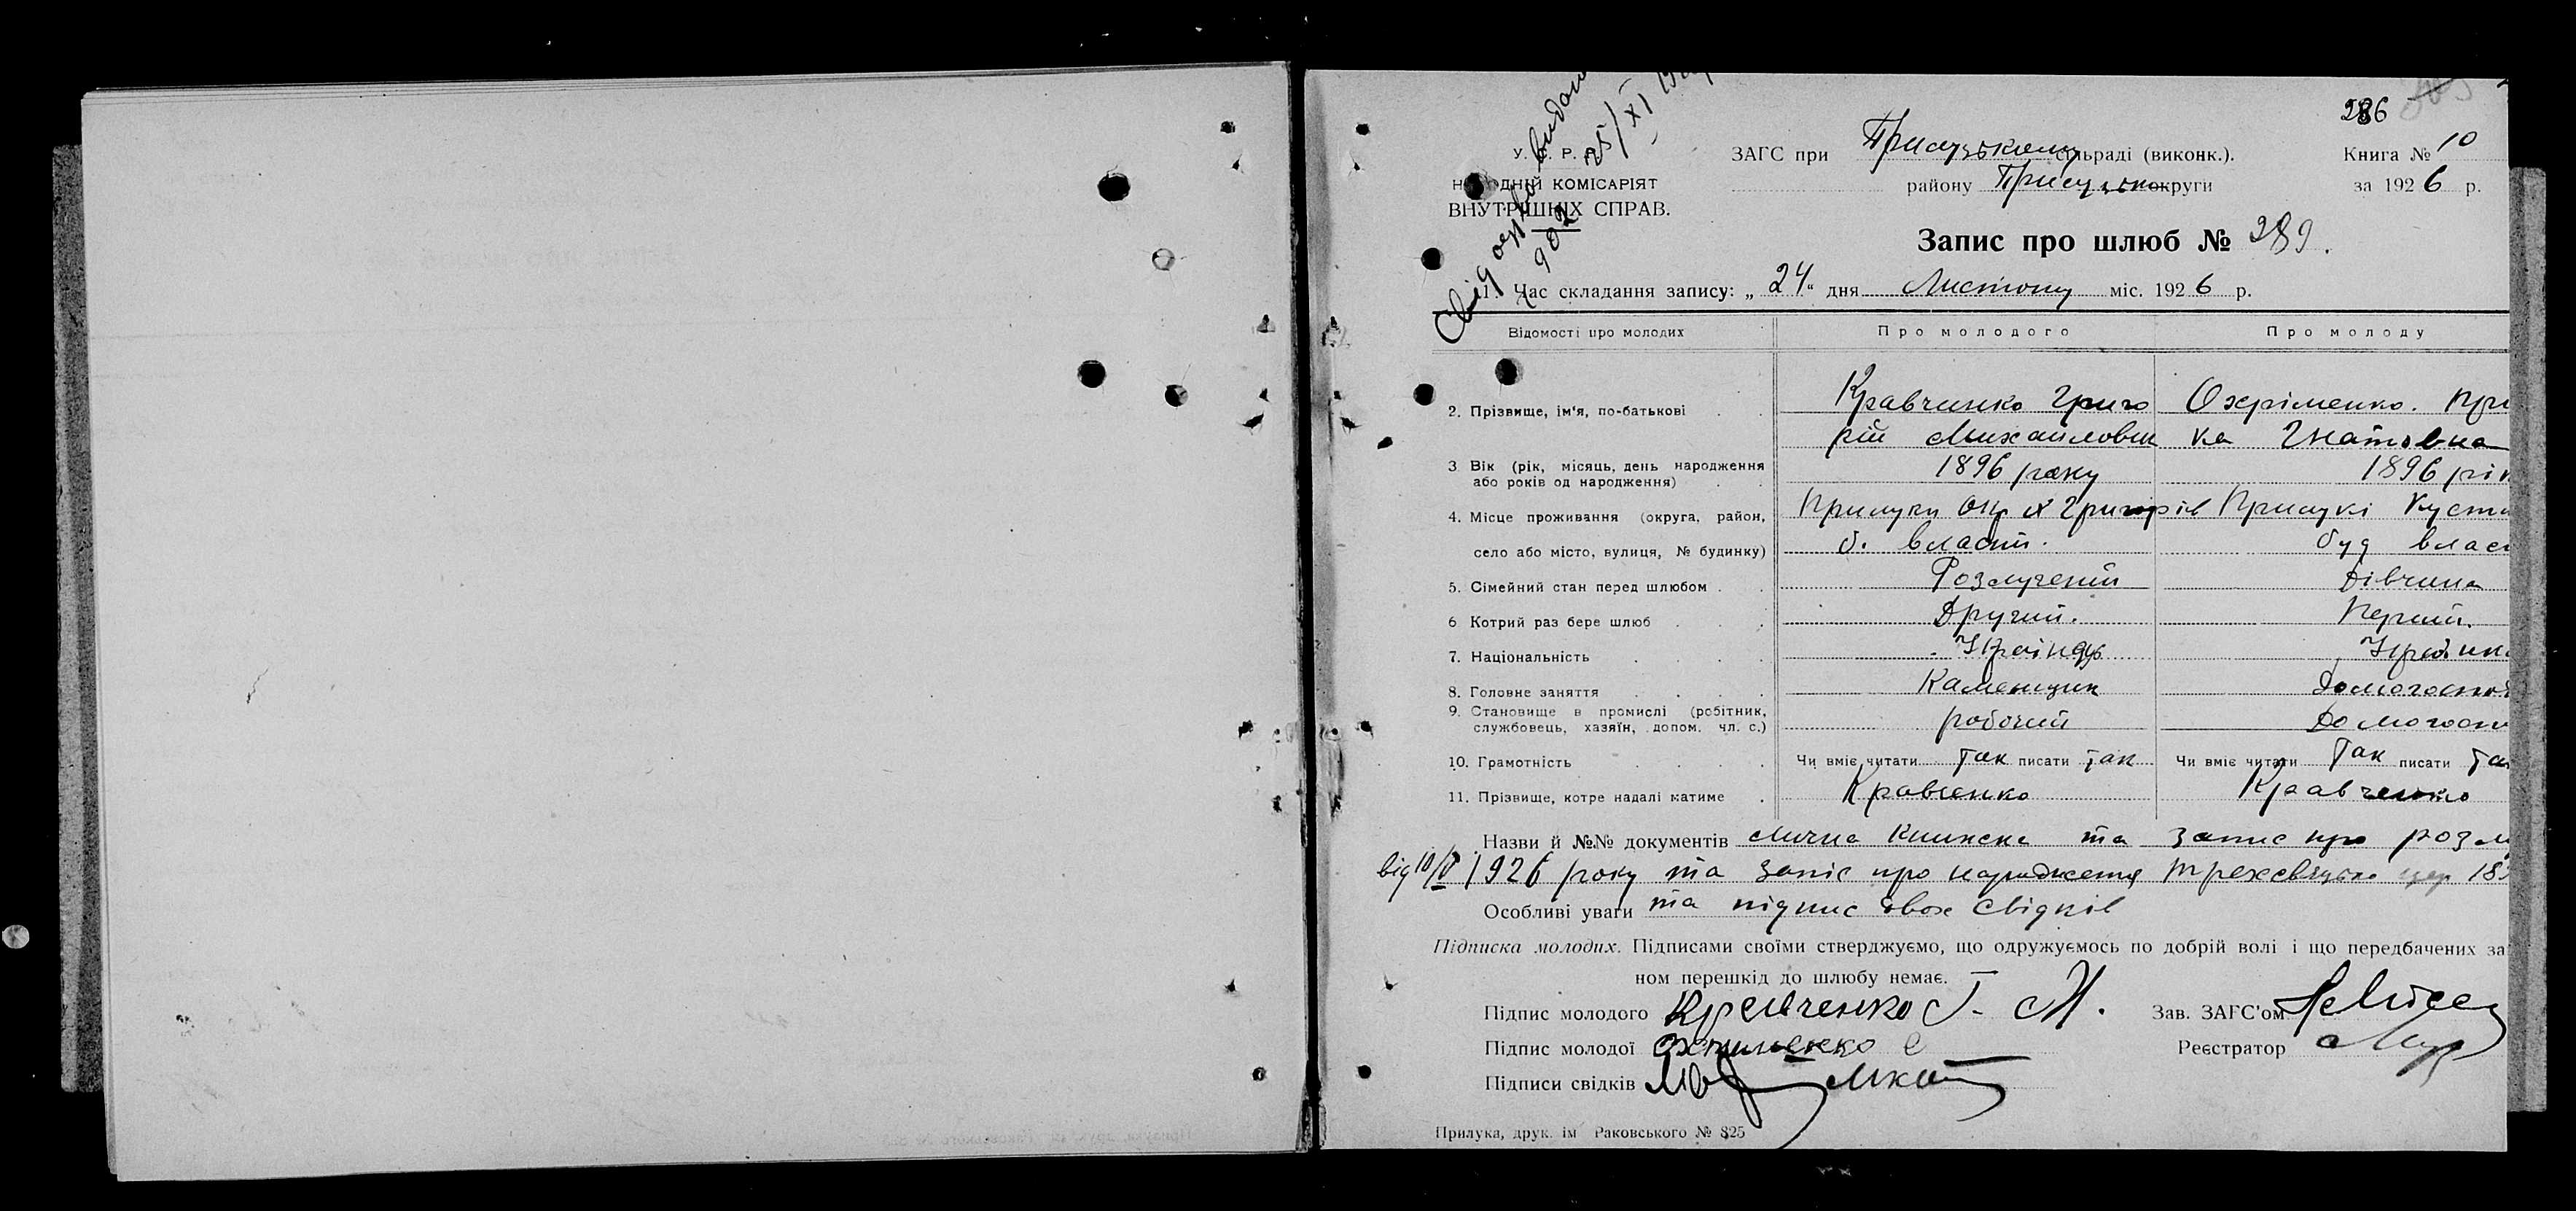 286
Свідоцтво видано
902 25/XI
У. Р. Р.
НАРОДНІЙ КОМІСАРІЯТ
ВНУТРІШНІХ СПРАВ.
ЗАГС при Прилуцькому сільраді (виконк.).
району Прилуцьк округи
Книга № 10
за 1926 р.
Запис про шлюб № 289.
1. Час складання запису: „24“ дня Листопу міс. 1926 р.
Відомості про молодих Про молодого Про молоду
2. Прізвище, ім'я, по-батькові Кравченко Григо Охріменко. При
рій Михайлович ка Гнатовна
3 Вік (рік, місяць, день народження 1896 року 1896 рік
або років од народження)
4. Місце проживання (округа, район, Прилуки окр х Григорів Прилукі Куст
село або місто, вулиця, № будинку) б. власт. буд влас
5. Сімейний стан перед шлюбом Розлучений Дівчина
6 Котрий раз бере шлюб Другий. Перший.
7. Національність Українць Україн
8. Головне заняття Каменщик Домогосп
9. Становище в промислі (робітник, робочий Домогосп
службовець, хазяїн, допом. чл. с.)
10. Грамотність Чи вміє читати так писати так Чи вміє читати Так писати Та
11. Прізвище, котре надалі матиме Кравченко Кравченко
Назви й №№ документів Лична Книжка та запис про розл
від 10/V 1926 року та запіс про народження Трехсвяцько цер 18
Особливі уваги та підпис двох свідків
Підписка молодих. Підписами своїми стверджуємо, що одружуємось по добрій волі і що передбачених за
ном перешкід до шлюбу немає.
Підпис молодого Кравченко Г. М. Зав. ЗАГС'ом
Підпис молодої Охрименко Реєстратор
Підписи свідків
Прилука, друк. ім Раковського № 825